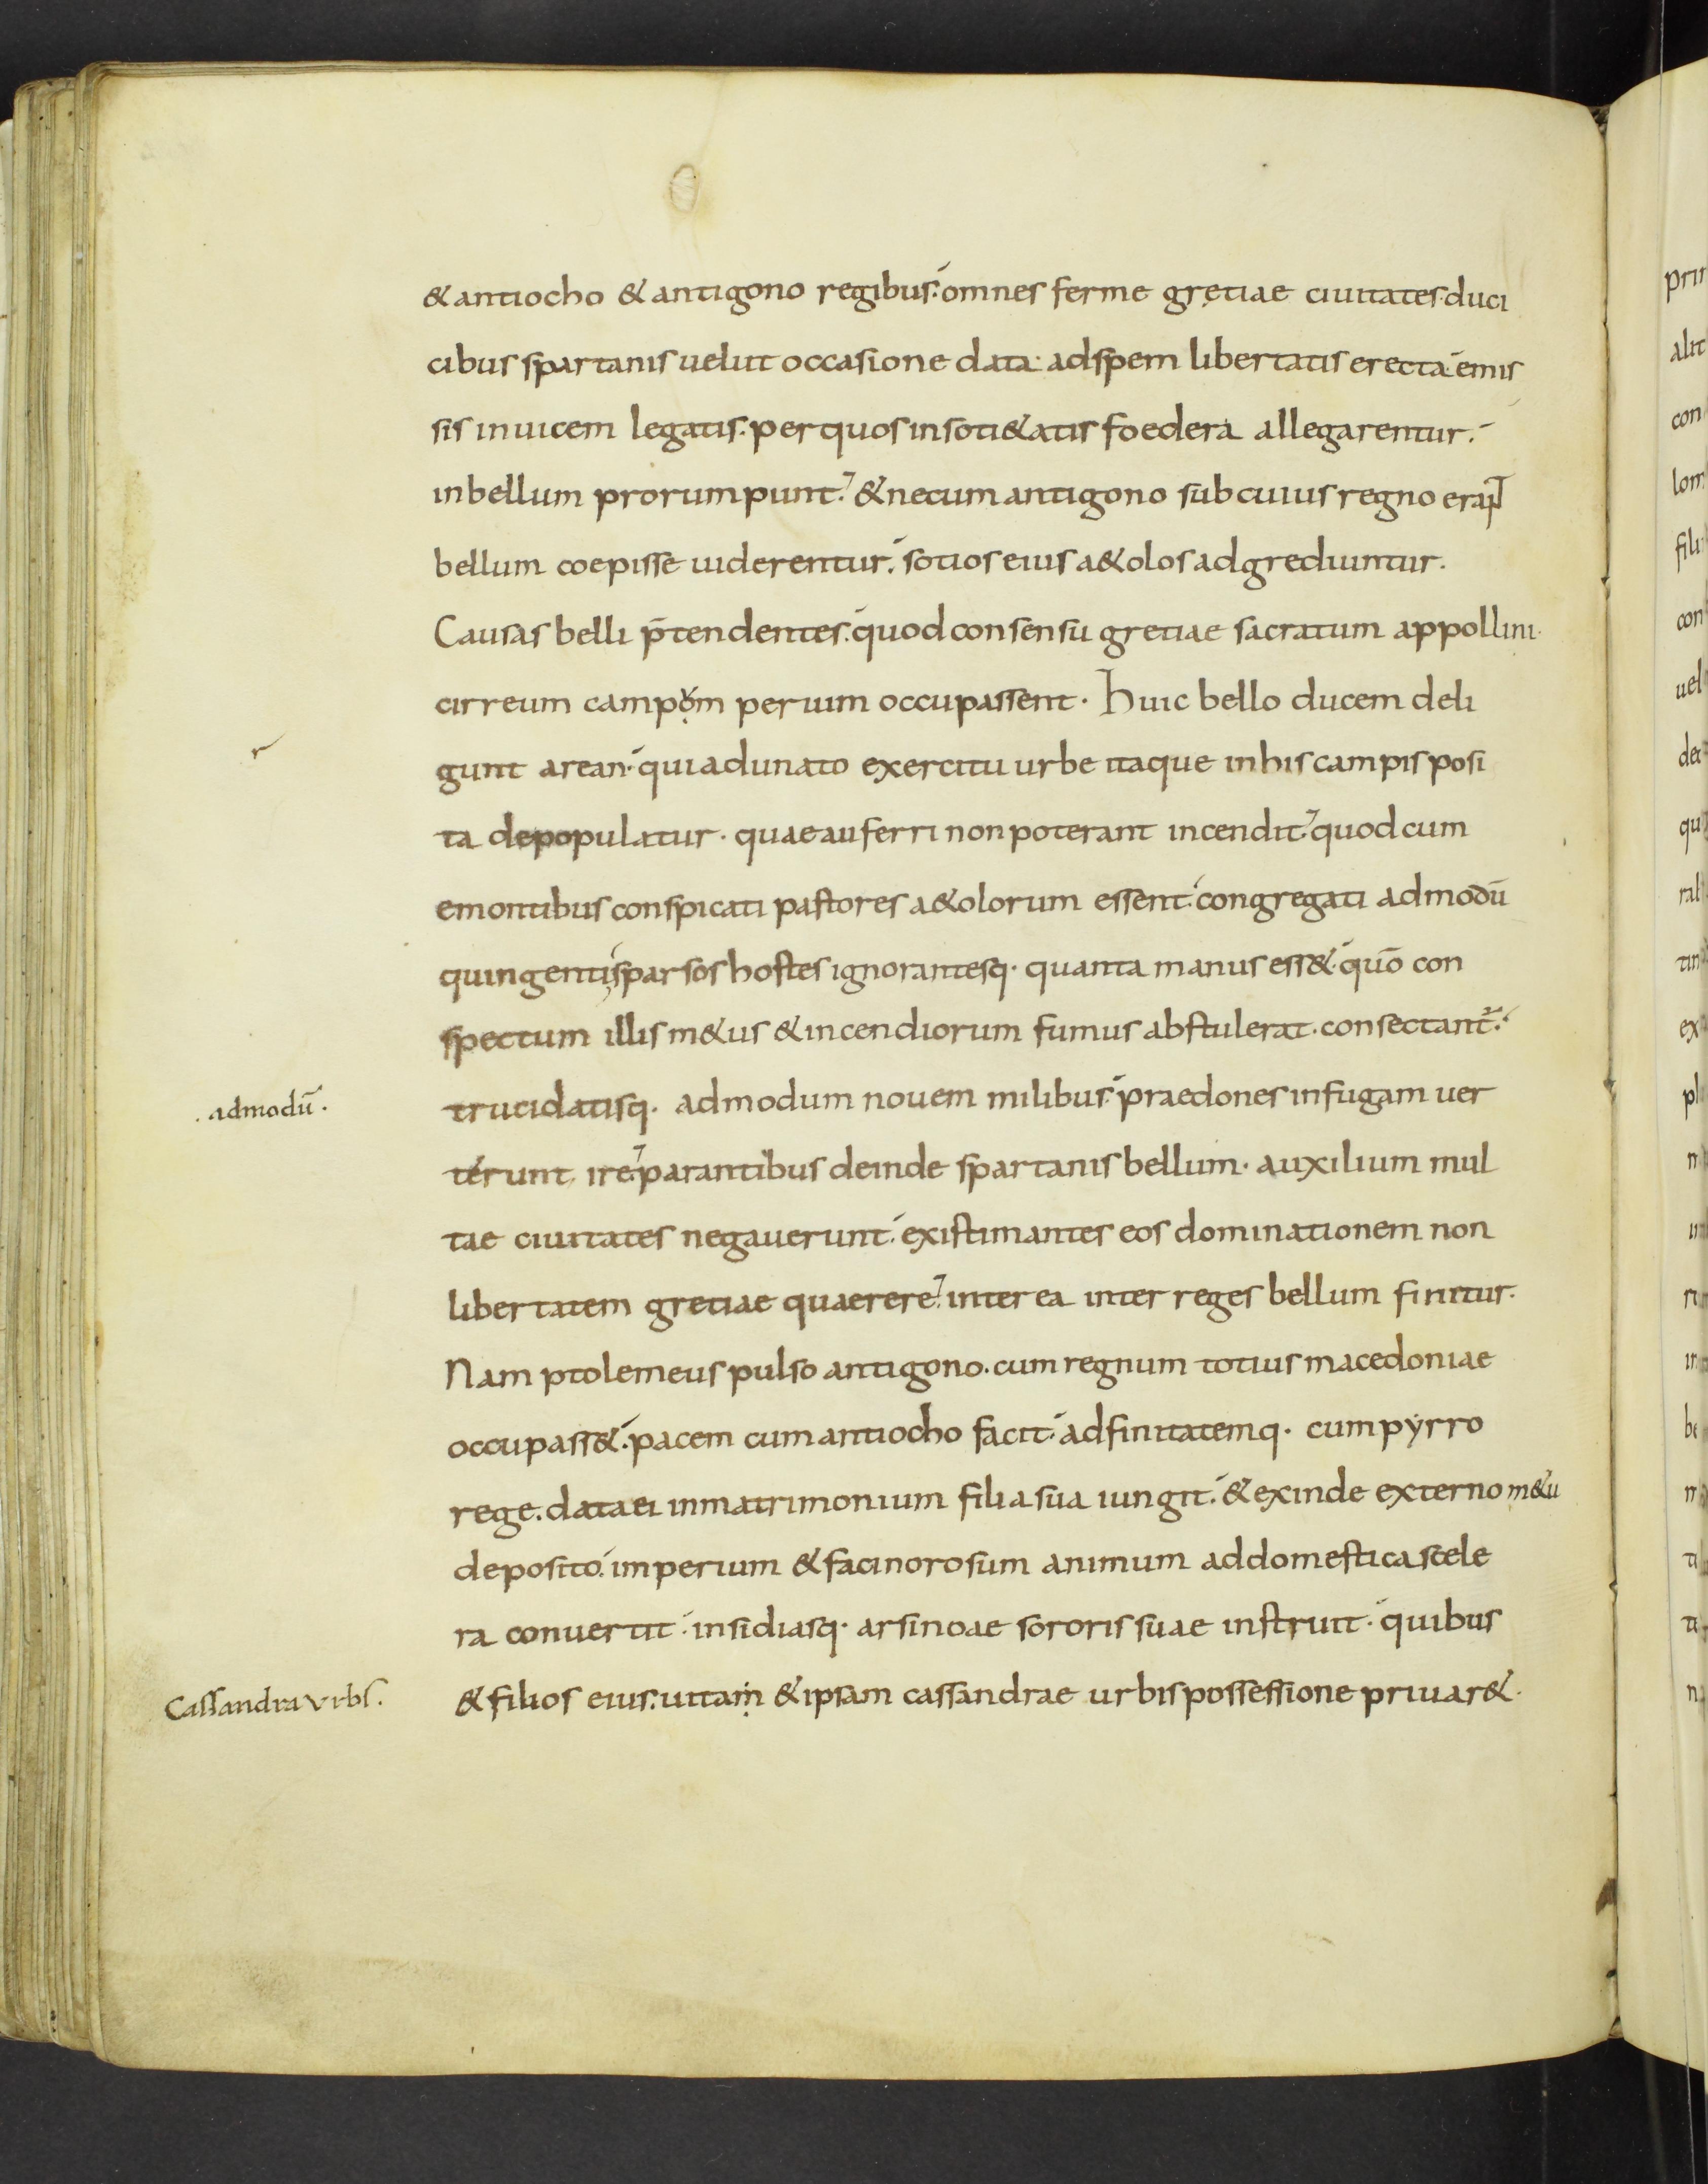 & antiocho & antigono regibus. omnes ferme gretiae ciuitates. duci
cibus spartanis uelut occasione data. ad spem libertatis erecta. emis
sis inuicem legatis. per quos in soti&atis foedera allegarentur.
in bellum prorumpunt. & ne cum antigono sub cuius regno erant
bellum coepisse uiderentur. sotios eius a&olos adgrediuntur.
Causas belli p̄tendentes. quod consensu gretiae sacratum appollini.
cirreum campom peruim occupassent. Huic bello ducem deli
gunt arean. qui adunato exercitu urbe itaque in his campis posi
ta depopulatur. quae auferri non poterant incendit. quod cum
e montibus conspicati pastores a&olorum essent. congregati admodū
quingenti sparsos hostes ignorantesq. quanta manus ess&. quō con
spectum illis m&us & incendiorum fumus abstulerat. consectant̃.
admodū.
trucidatisq. admodum nouem milibus. praedones in fugam uer
terunt. ire. parantibus deinde spartanis bellum. auxilium mul
tae ciuitates negauerunt. existimantes eos dominationem non
libertatem gretiae quaerere. interea inter reges bellum finitur.
Nam ptolemeus pulso antigono. cum regnum totius macedoniae
occupass&. pacem cum antiocho facit. adfinitatemq. cum pyrro
rege. data ei in matrimonium filia sua iungit. & exinde externo m&u
deposito. imperium & facinorosum animum ad domestica scele
ra conuertit. insidiasq. arsinoae sororis suae instruit. quibus
Cassandra urbs.
& filios eius. uitam & ipsam cassandrae urbis possessione priuar&.